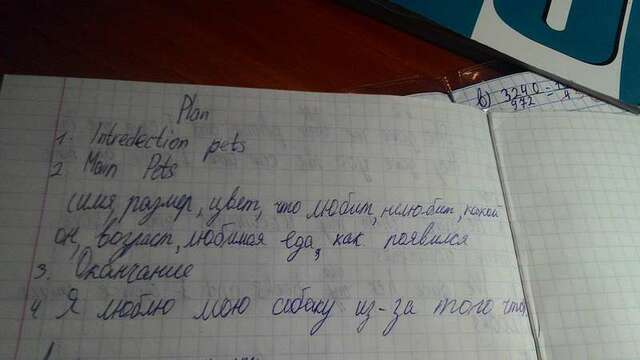 Plan
1. Intredection pets
2 Main Pets
(имя, размер, цвет, что любит, нелюбит, какой
он, возраст, любимая еда, как появился
3. Окончание
4 Я люблю мою собаку из-за того что
в) 3240
972
=
4